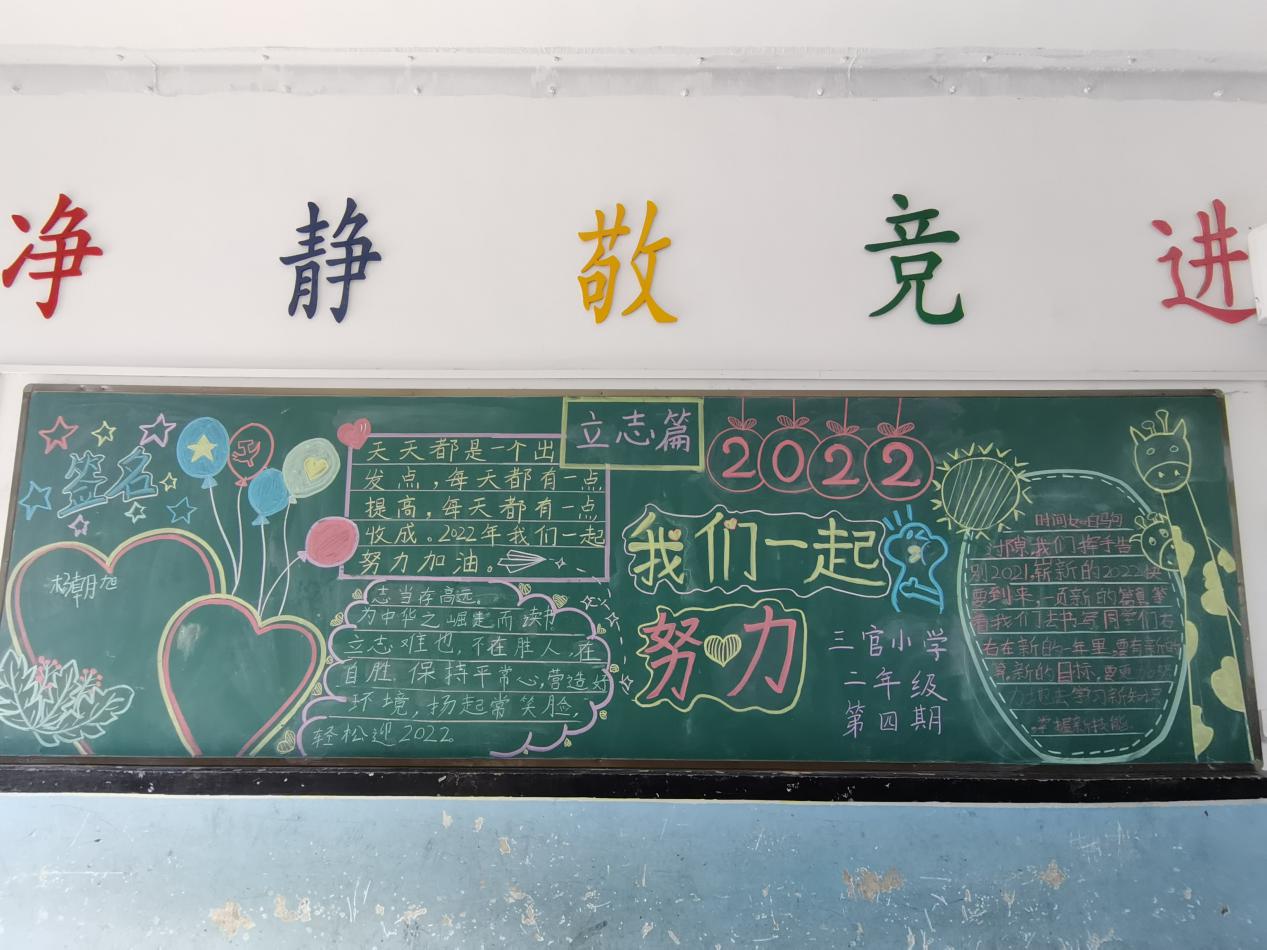 净 静 敬 竞 进
签名
杨朝旭
天天都是一个出
发点，每天都有一点
提高，每天都有一点
收成。2022年我们一起
努力加油。
志当存高远。
为中华之崛起而读书
立志难也，不在胜人，在
自胜。保持平常心，营造好
环境，扬起常笑脸，
轻松迎2022。
立志篇
2022
我们一起
努力
三官小学
二年级
第四期
时间如白马句
过隙，我们挥手告
别2021，崭新的2022快
要到来，一页新的篇章等
着我们去书写同学们
在新的一年里，要有新的
新的目标，要更
地去学习新知识
掌握新技能